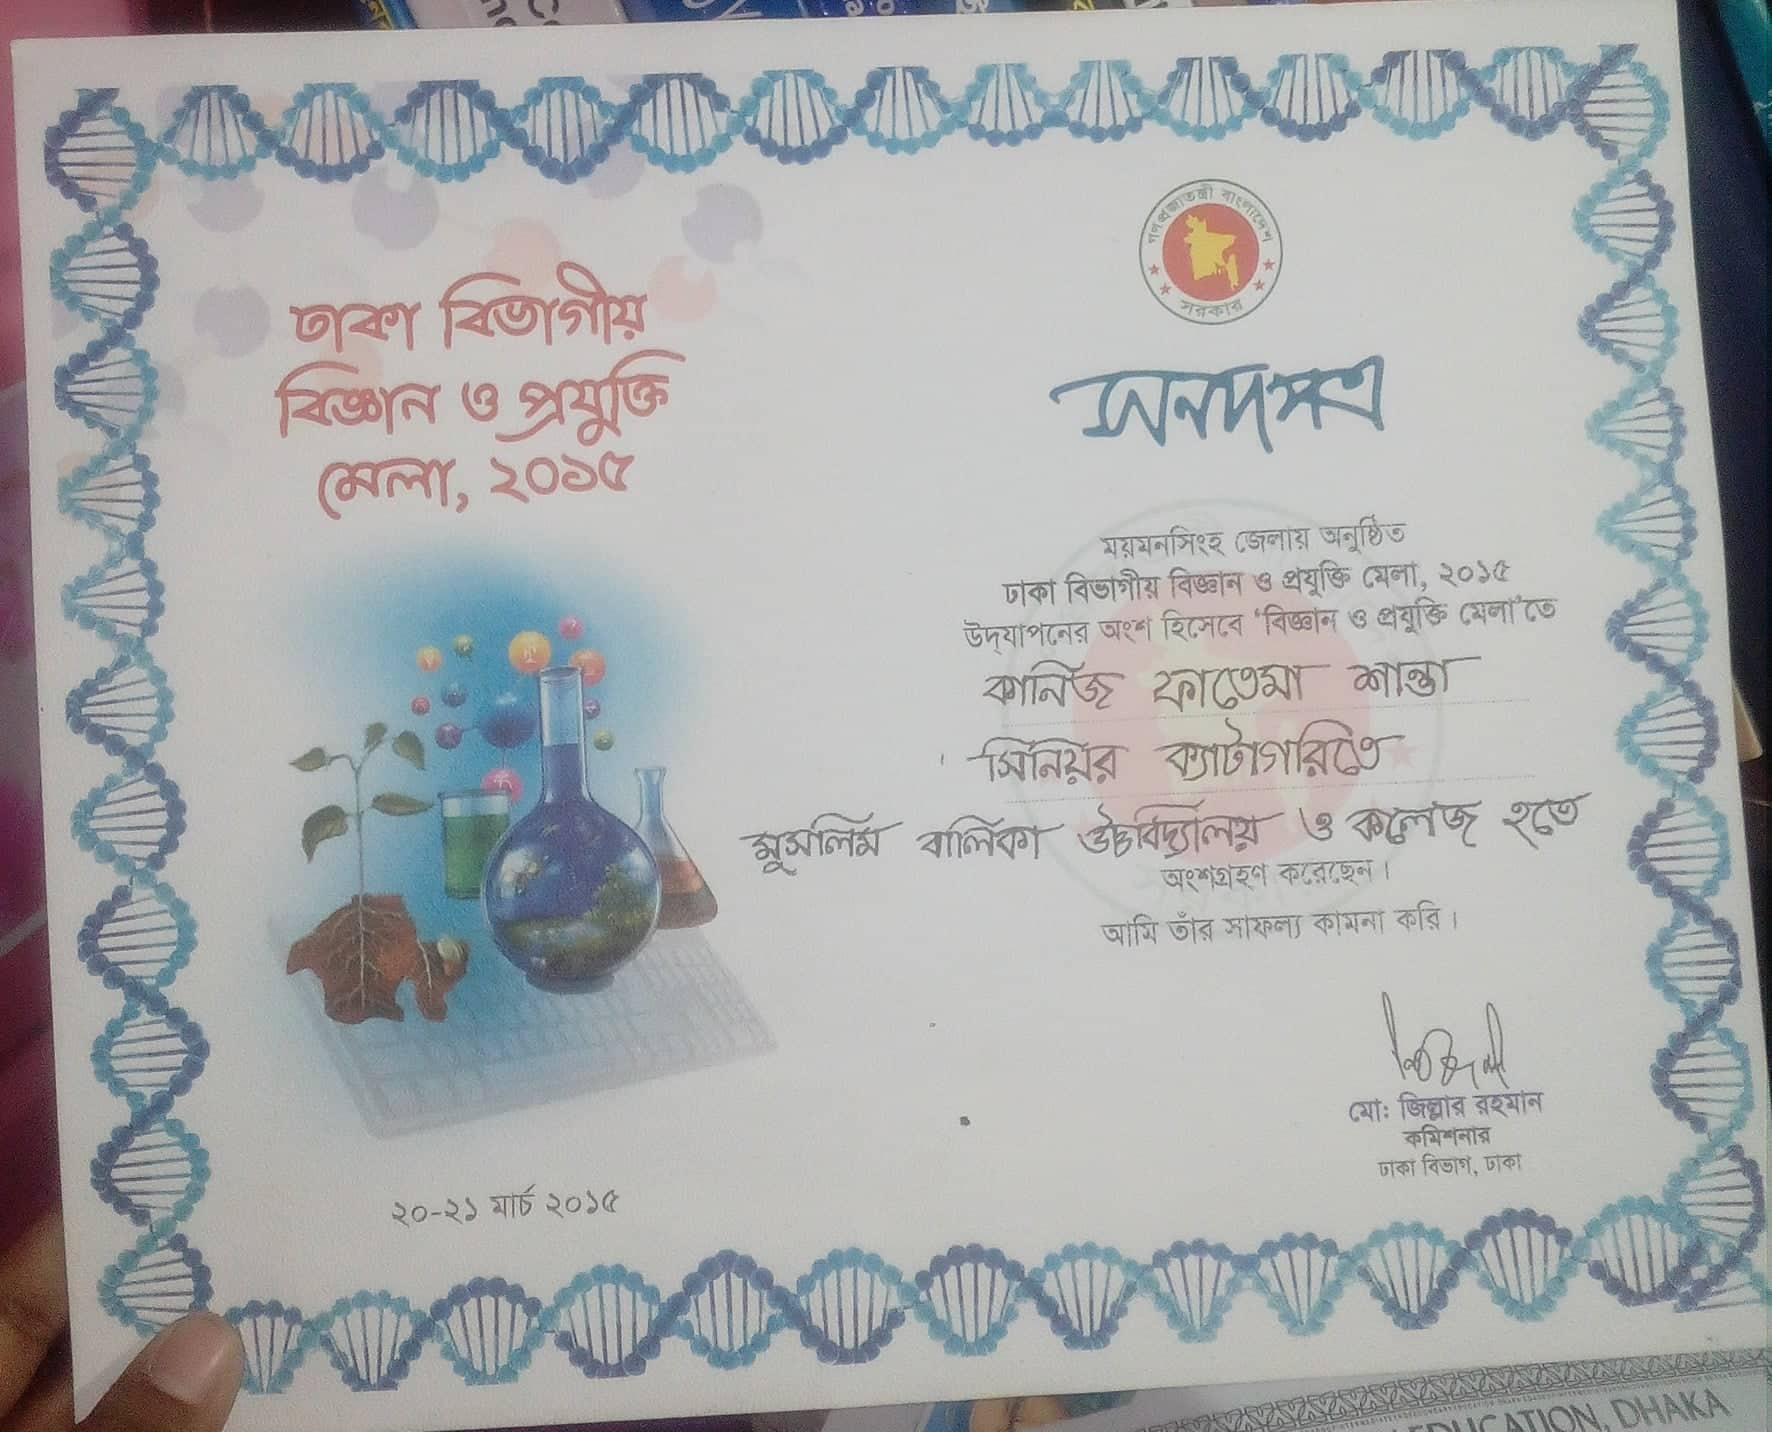 গণপ্রজাতন্ত্রী বাংলাদেশ
সরকার
ঢাকা বিভাগীয়
বিজ্ঞান ও প্রযুক্তি
মেলা, ২০১৫
সনদপত্র
ময়মনসিংহ জেলায় অনুষ্ঠিত
ঢাকা বিভাগীয় বিজ্ঞান ও প্রযুক্তি মেলা, ২০১৫
উদ্‌যাপনের অংশ হিসেবে ‘বিজ্ঞান ও প্রযুক্তি মেলা’তে
কানিজ ফাতেমা শান্তা
সিনিয়র ক্যাটাগরিতে
মুসলিম বালিকা উচ্চবিদ্যালয় ও কলেজ হতে
অংশগ্রহণ করেছেন।
আমি তাঁর সাফল্য কামনা করি।
মো: জিল্লার রহমান
কমিশনার
ঢাকা বিভাগ, ঢাকা
২০-২১ মার্চ ২০১৫
EDUCATION, DHAKA